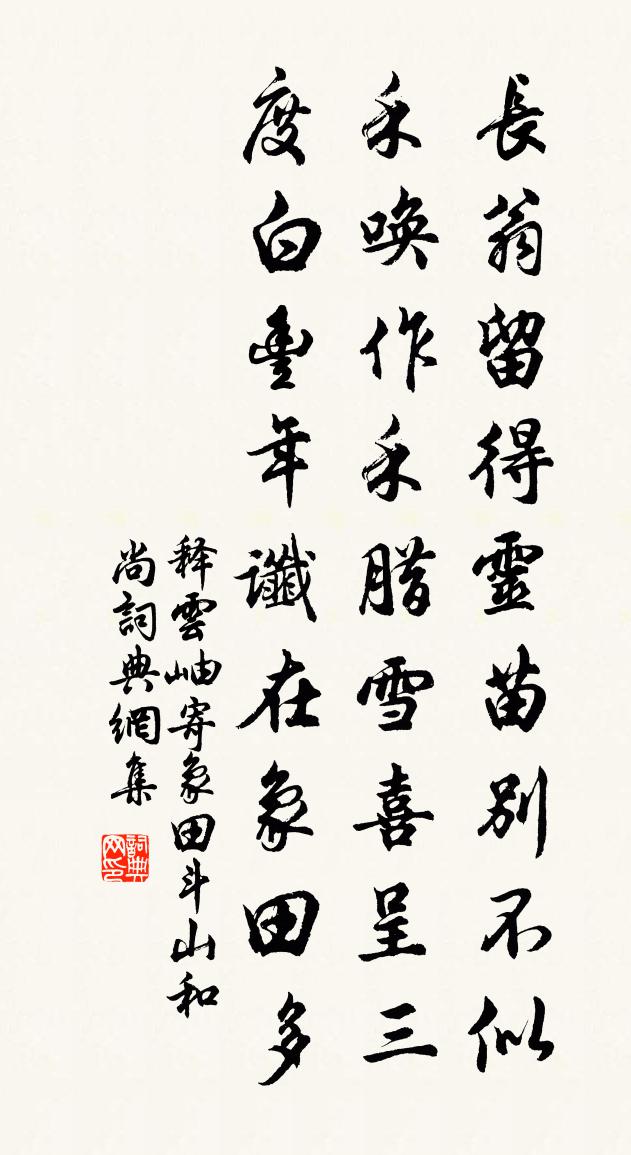 長翁留得靈苗別不似
禾喚作禾腊雪喜呈三
度白豊年讖在象田多
释雲岫寄象田斗山和
尚詞典網集
詞典网印